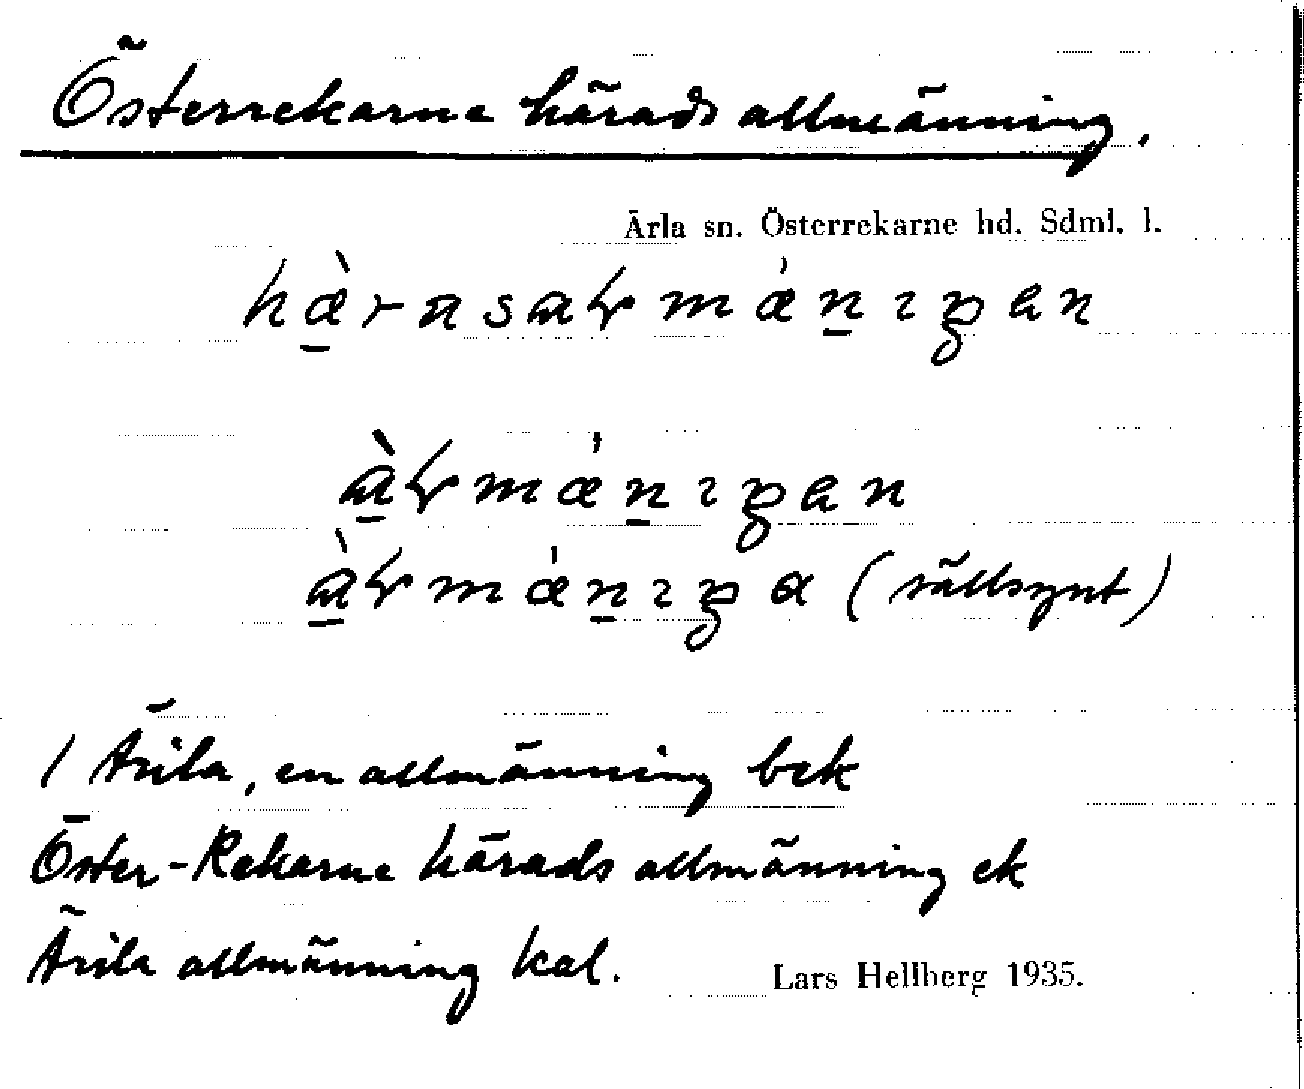 Österrekarne härads allmänning.
Ärla sn. Österrekarne hd. Södml. l.
hæ̀rasaɫmǽnıŋən
àɫmǽnıŋən
àɫmǽnıŋa (sällsynt)
/ Ärila, en allmänning bek
Öster-Rekarne härads allmänning ek
Ärila allmänning kal.
Lars Hellberg 1935.